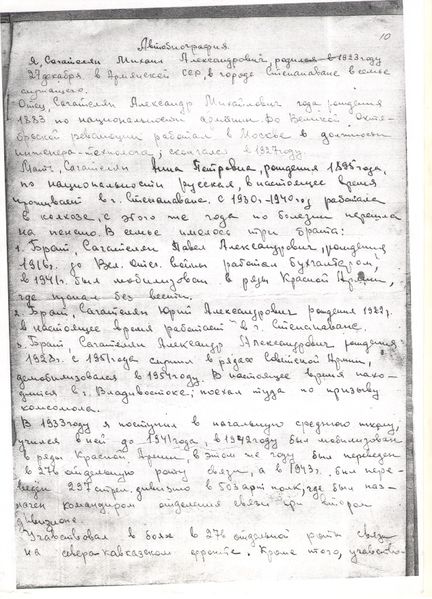 10
Автобиография.
Я, Сагателян Михаил Александрович, родился в 1923 году
27 декабря в Армянской ССР, в городе Степанаване в семье
служащего.
Отец, Сагателян Александр Михайлович года рождения
1883 по национальности армянин. До Великой Октя-
брьской революции работал в Москве в должности
инженера-технолога; скончался в 1927 году.
Мать, Сагателян Анна Петровна, рождения 1895 года,
по национальности русская, в настоящее время
проживает в г. Степанаване. С 1930-1940 год работала
в колхозе, с этого же года по болезни перешла
на пенсию. В семье имелось три брата:
1. Брат, Сагателян Павел Александрович, рождения
1916 г. до Вел. Отеч. войны работал бухгалтером,
в 1941 г. был мобилизован в ряды Красной Армии,
где пропал без вести.
2. Брат, Сагателян Юрий Александрович рождения 1922 г.
в настоящее время работает в г. Степанаване.
3. Брат Сагателян Александр Александрович рождения
с 1951 года служил в рядах Советской Армии,
демобилизовался в 1954 году. В настоящее время нахо-
дится в г. Владивостоке; поехал туда по призыву
комсомола.
В 1933 году я поступил в начальную среднюю школу,
учился в ней до 1941 года, в 1942 году был мобилизован
в ряды Красной Армии, в этом же году был переведен
в 276 отдельную роту связи, а в 1943 г. был пере-
веден 297 стрел. дивизию в полк, где был наз-
начен командиром отделения связи при втором
дивизионе.
Участвовал в боях в 276 отдельной роты связи
на северо-кавказском фронте. Кроме того, участво-